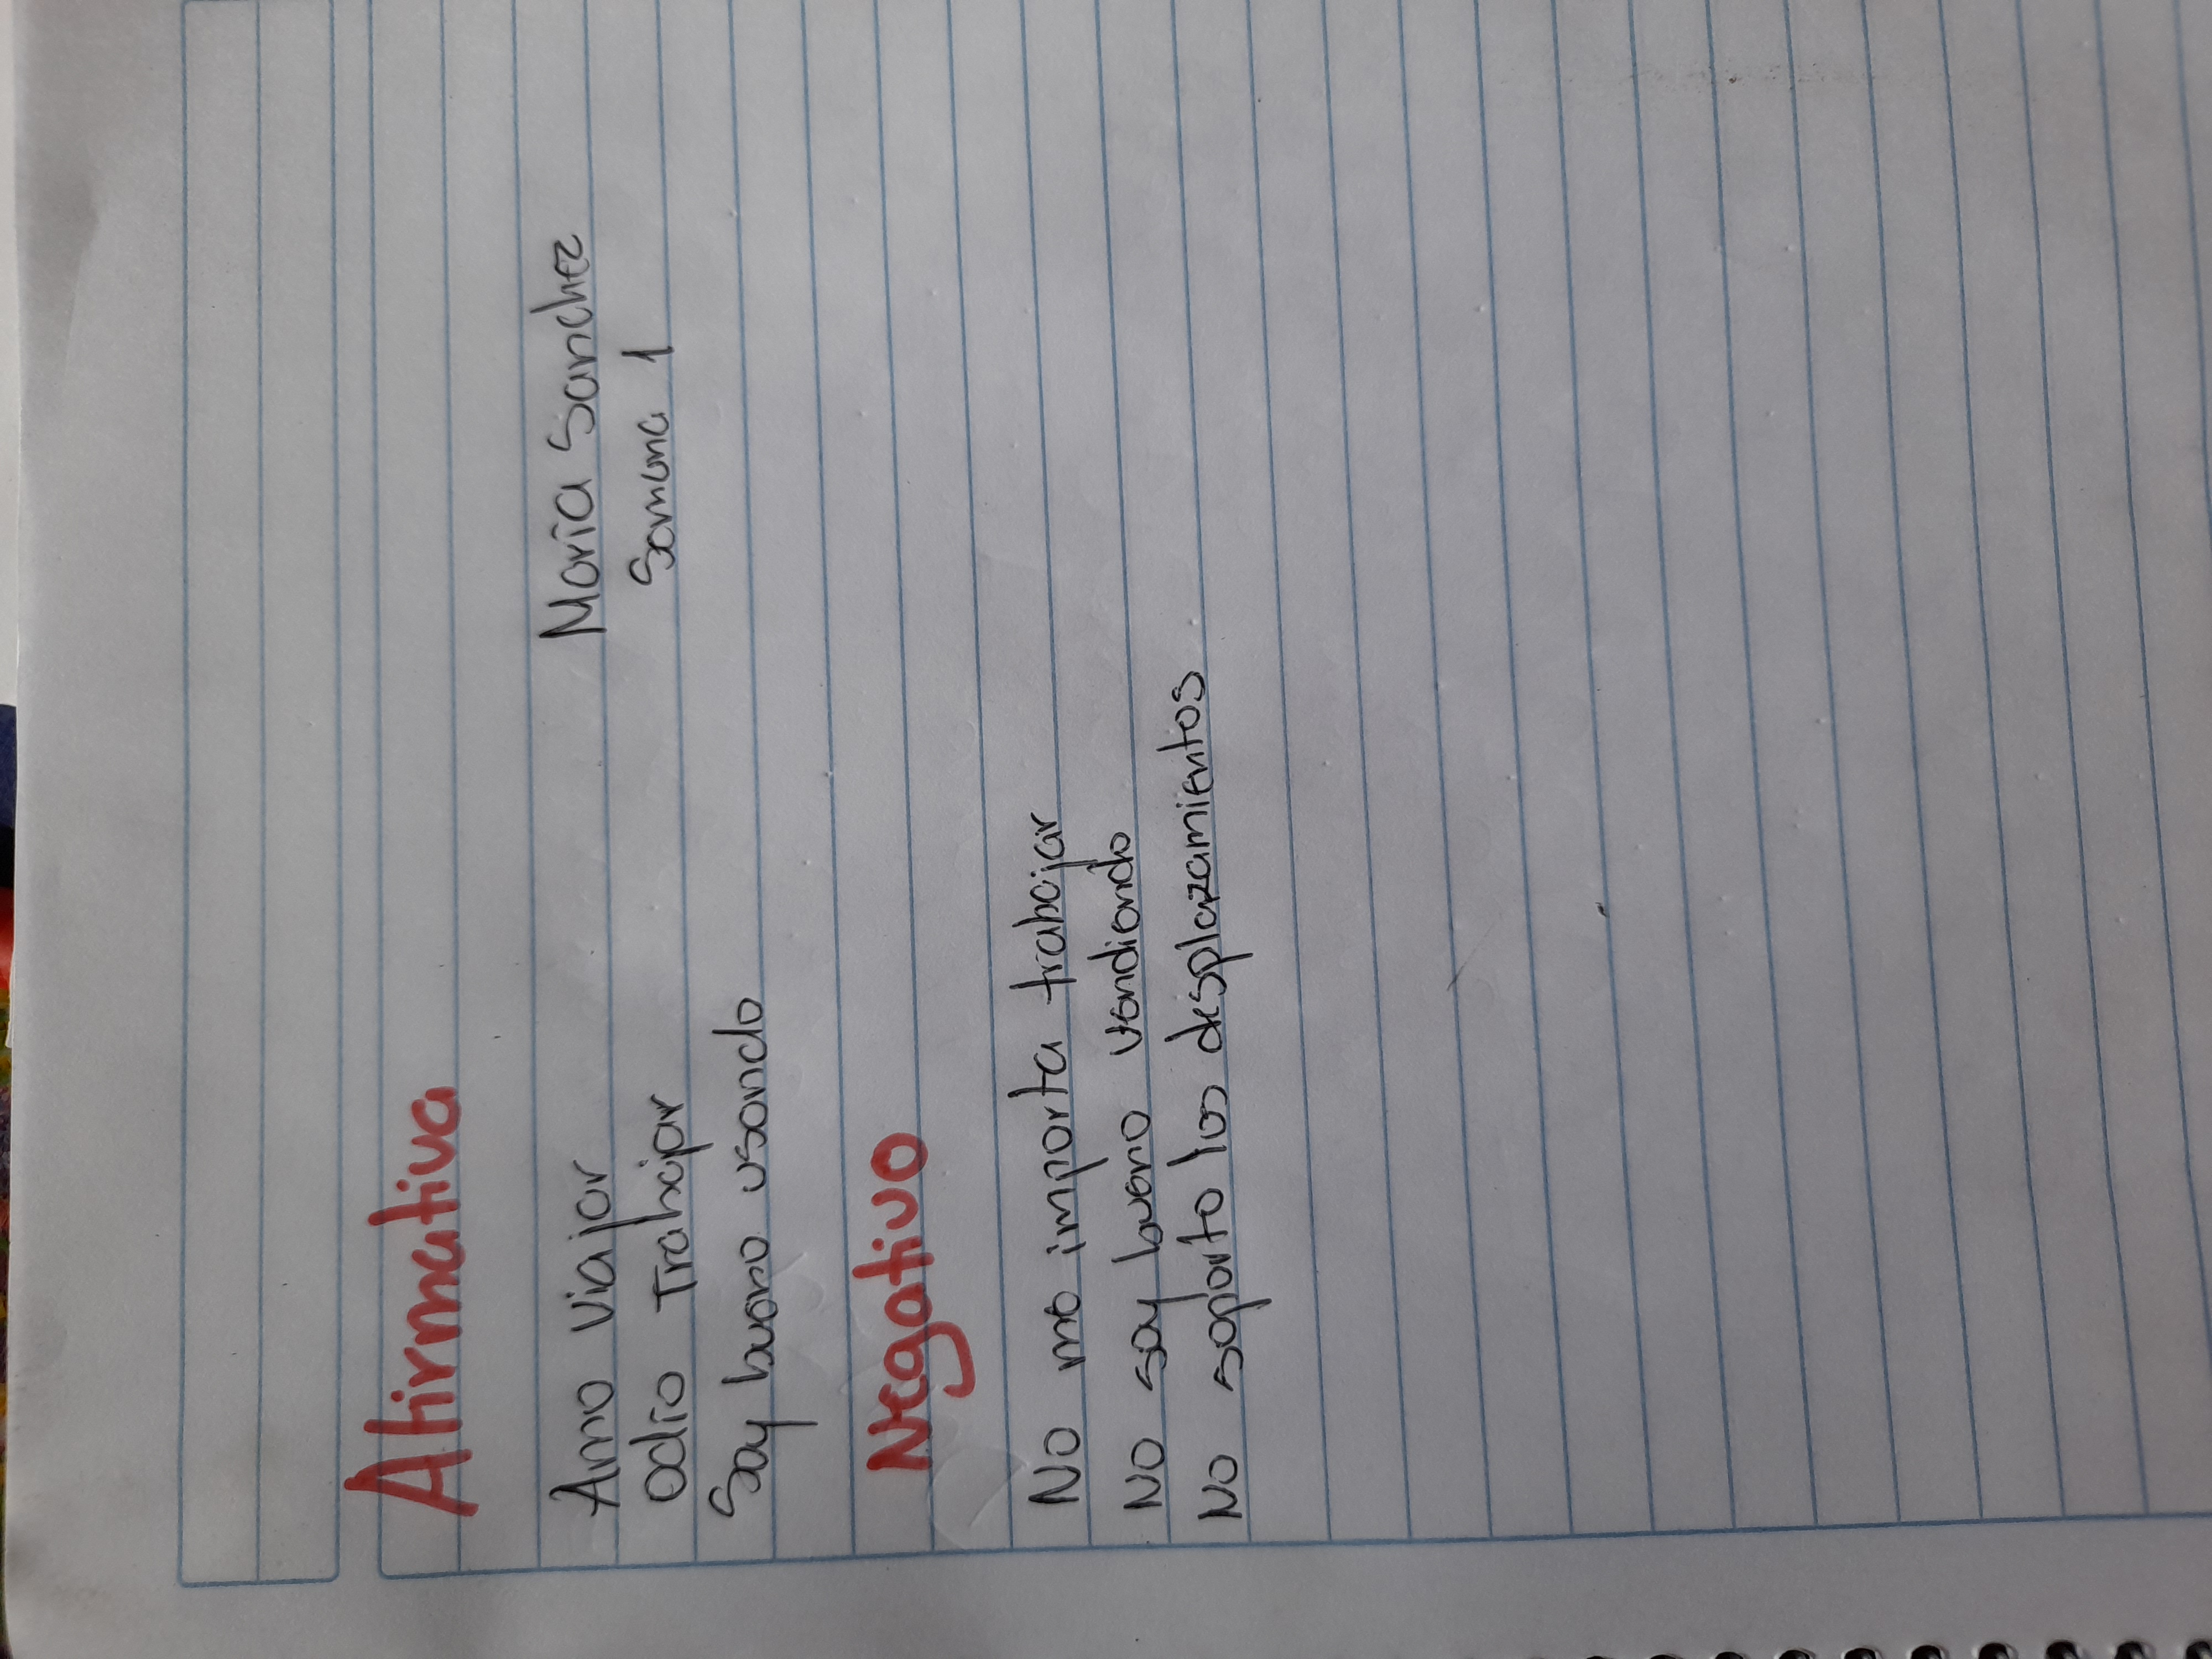 Afirmativa
Amo Viajar
María Sanchez
Odio Trabajar
Semana 1
Soy bueno usando
Negativo
No me importa trabajar
No soy bueno vendiendo
No soporto los desplazamientos